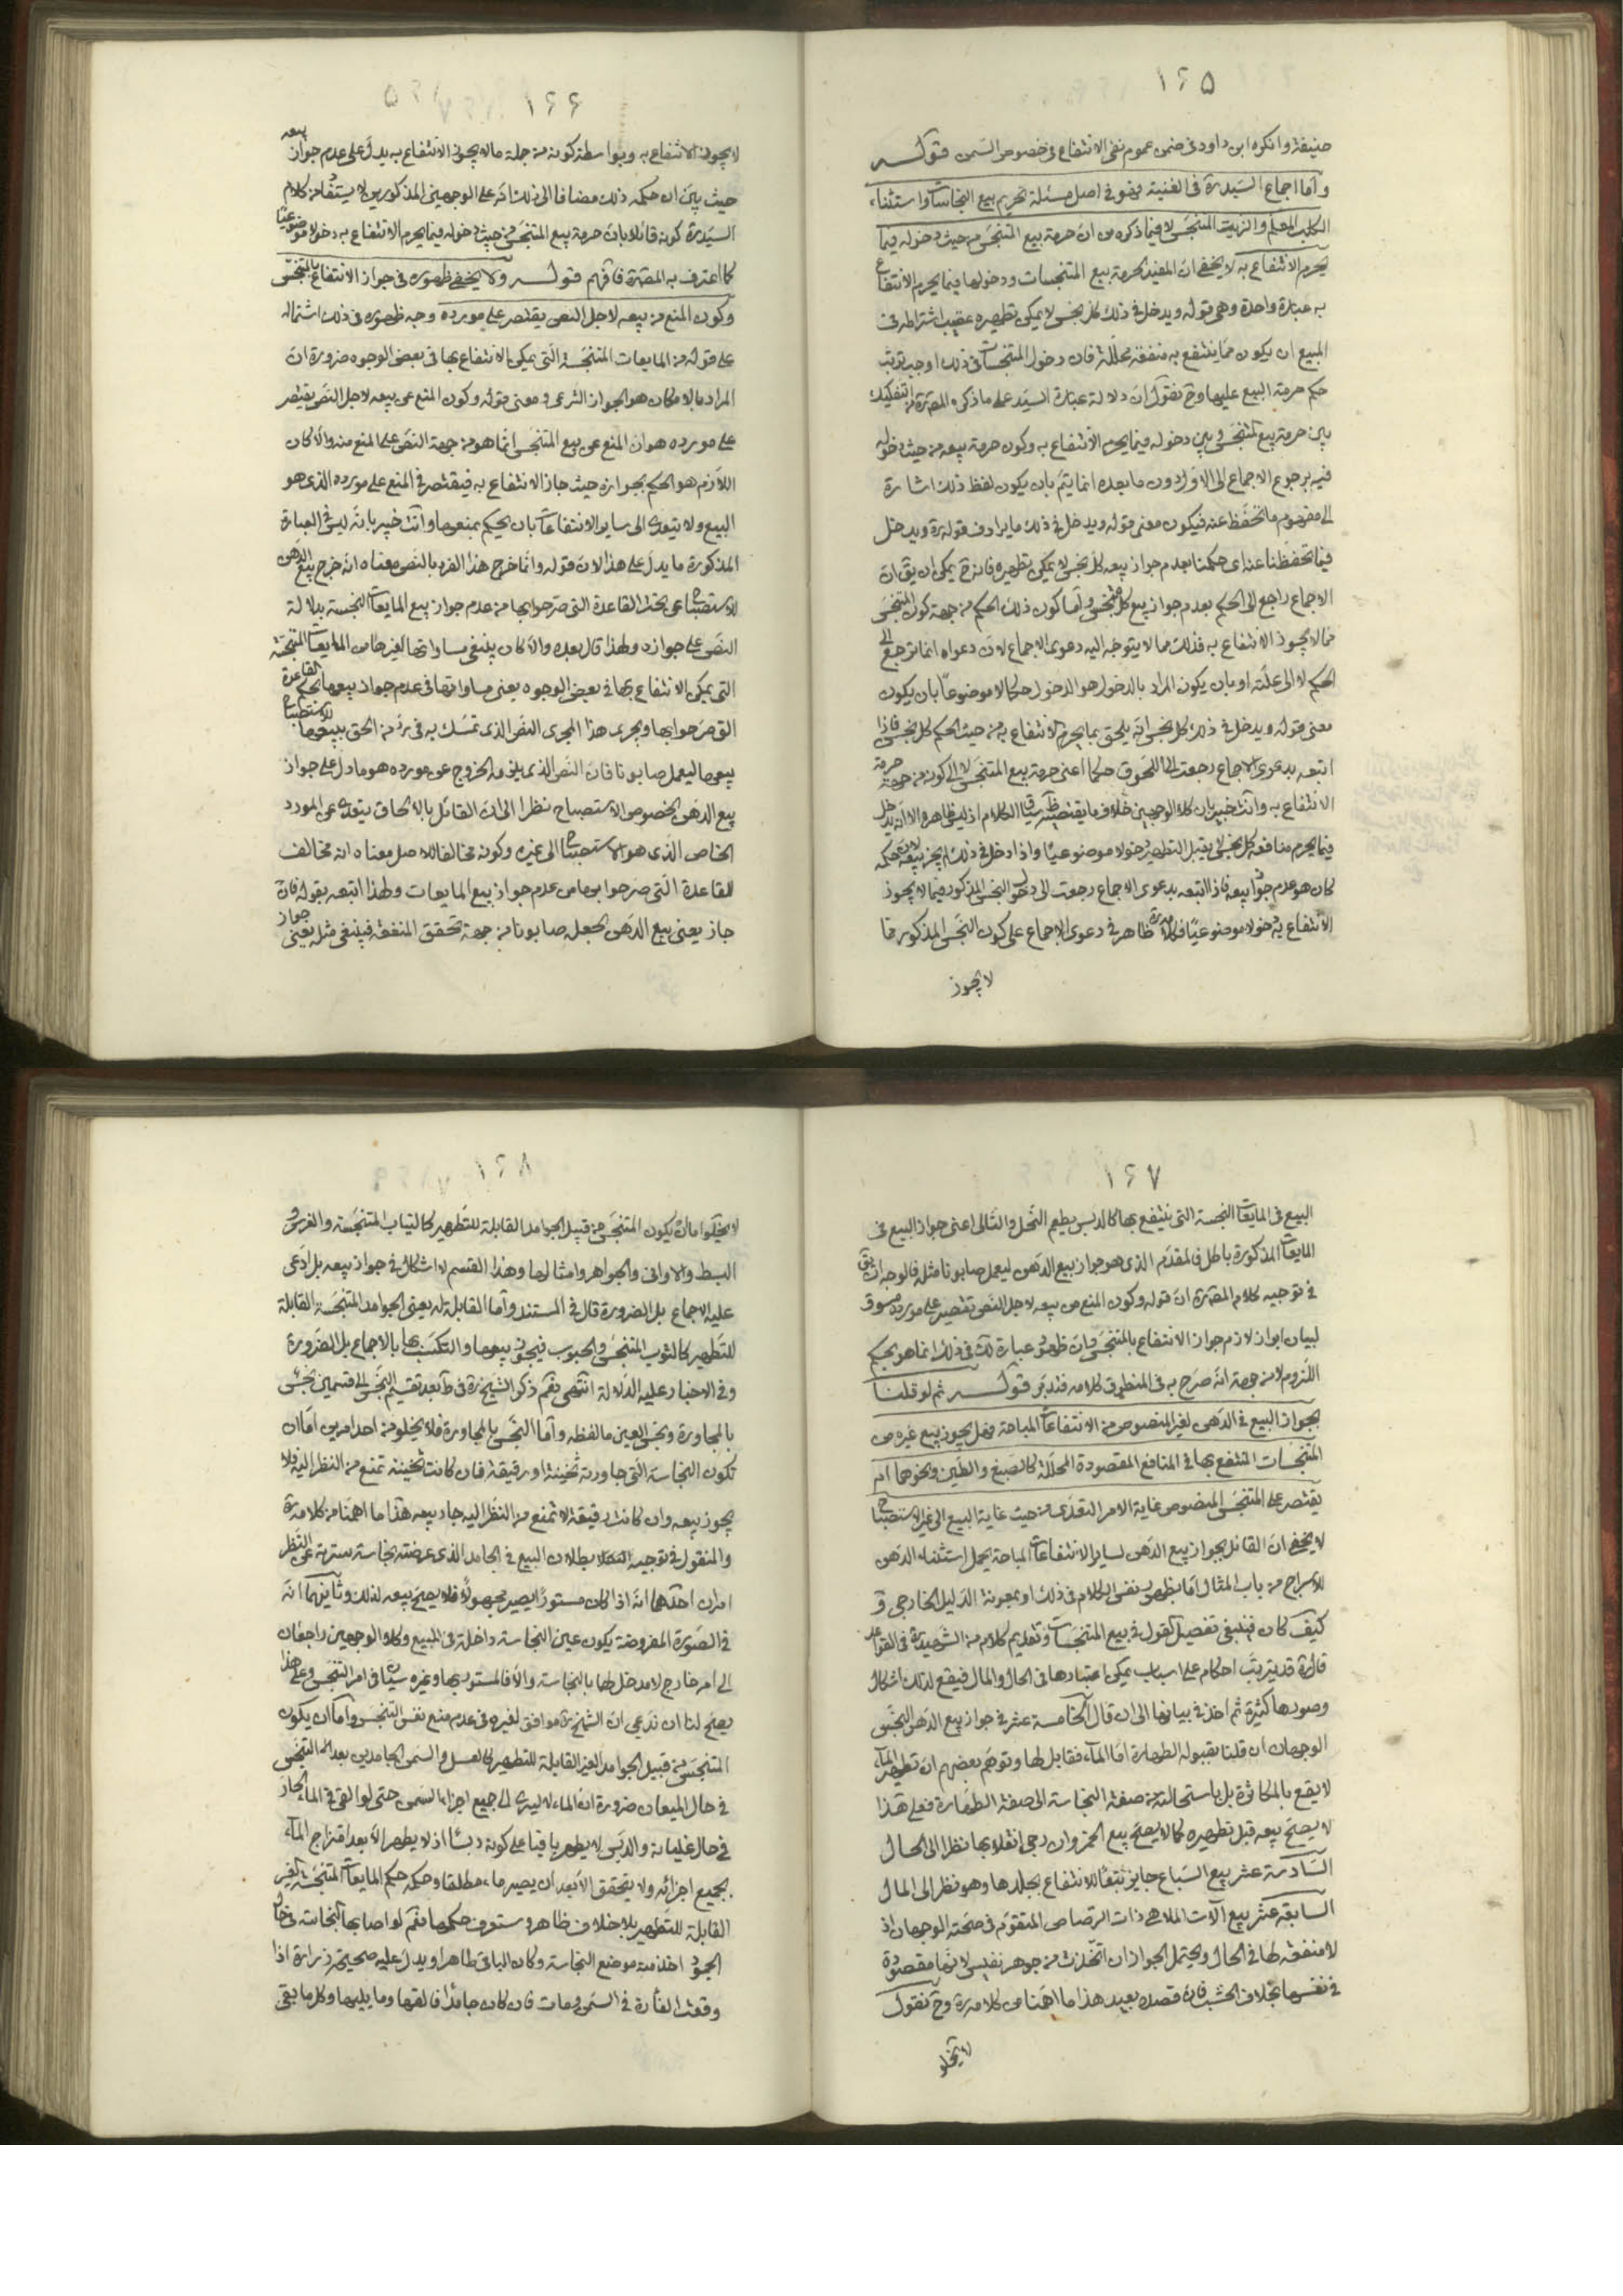 ١٦٥
حنيفة وانكره ابن داود في ضمن عموم نفي الانتفاع في خصوص السمن قوله
وأما اجماع السيد ره في الغنية فهو في اصل مسئلة تحريم بيع النجاسات واستثناء
الكلب المعلم والزيت المتنجس لا فيما ذكره من ان حرمة بيع المتنجس من حيث دخوله فيما
يحرم الانتفاع به لا يخفى ان المفيد لحرمة بيع المتنجسات ودخولها فيما يحرم الانتفاع
به عبارة واحدة وهي قوله ويدخل في ذلك كل نجس لا يمكن تطهيره عقيب اشتراطه في
المبيع ان يكون مما ينتفع به منفعة محللة فان دخول المتنجسات في ذلك اوجب ترتب
حكم حرمة البيع عليها وح نقول ان دلالة عبارة السيد على ما ذكره المص ره من التفكيك
بين حرمة بيع المتنجس وبين دخوله فيما يحرم الانتفاع به وكون حرمة بيعه من حيث دخوله
فيه برجوع الاجماع الى الاول دون ما بعده انما يتم بان يكون لفظ ذلك اشارة
الى مفهوم ما تحفظ عنه فيكون معنى قوله ويدخل في ذلك ما يرادف قوله ره ويدخل
فيما تحفظنا عنه اى حكمنا بعدم جواز بيعه كل نجس لا يمكن تطهيره فانه ح يمكن ان يق ان
الاجماع راجع الى الحكم بعدم جواز بيع كل متنجس وأما كون ذلك الحكم من جهة كون المتنجس
مما لا يجوز الانتفاع به فذلك مما لا يتوجه اليه دعوى الاجماع لان دعواه انما ترجع الى
الحكم لا الى علته او بان يكون المراد بالدخول هو الدخول حكما لا موضوعا بان يكون
معنى قوله ويدخل في ذلك كل نجس انه يلحق بما يحرم الانتفاع به من حيث الحكم كل نجس فاذا
اتبعه بدعوى الاجماع رجعت الى اللحوق حكما اعنى حرمة بيع المتنجس لا الى كونه من جهة حرمة
الانتفاع به وانت خبير بان كلا الوجهين خلاف ما يقتضيه سياق الكلام اذ ليس ظاهره الا انه يدخل
فيما يحرم منافعه كل نجس لا يقبل التطهير دخولا موضوعيا واذا دخل في ذلك لم يجز بيعه لان حكمه
كان هو عدم جواز بيعه فاذا اتبعه بدعوى الاجماع رجعت الى دخول النجس المذكور فيما لا يجوز
الانتفاع به دخولا موضوعيا فكلامه ره ظاهر في دعوى الاجماع على كون النجس المذكور مما
لا يجوز
١٦٦
لا يجوز الانتفاع به وبواسطة كونه من جملة ما لا يجوز الانتفاع به يدل على عدم جواز بيعه
حيث بين ان حكمه ذلك مضافا الى ذلك انه على الوجهين المذكورين لا يستفاد من كلام
السيد ره كونه قائلا بان حرمة بيع المتنجس من حيث دخوله فيما يحرم الانتفاع به دخولا موضوعيا
كما اعترف به المص ره فافهم قوله ولا يخفى ظهوره في جواز الانتفاع بالمتنجس
وكون المنع من بيعه لاجل النص يقتصر على مورده وجه ظهوره في ذلك اشتماله
على قوله من المايعات المتنجسة التي يمكن الانتفاع بها في بعض الوجوه ضرورة ان
المراد بالامكان هو الجواز الشرعى ومعنى قوله وكون المنع عن بيعه لاجل النص يقتصر
على مورده هو ان المنع عن بيع المتنجس انما هو من جهة النص على المنع منه والا كان
اللازم هو الحكم بجوازه حيث جاز الانتفاع به فيقتصر في المنع على مورده الذى هو
البيع ولا يتعدى الى ساير الانتفاعات بان يحكم بمنعها وانت خبير بانه ليس في العبارة
المذكورة ما يدل على هذا لان قوله وانما خرج هذا الفرد بالنص معناه انه خرج بيع الدهن
للاستصباح عن تحت القاعدة التي صرحوا بها من عدم جواز بيع المايعات النجسة بدلالة
النص على جوازه ولهذا قال بعده والا كان ينبغى مساواتها لغيرها من المايعات المتنجسة
التي يمكن الانتفاع بها في بعض الوجوه يعنى مساواتها في عدم جواز بيعها بحكم القاعدة
التي صرحوا بها ويجرى هذا المجرى النص الذى تمسك به في رد من الحق ببيعها للاستصباح
بيعها ليعمل صابونا فان النص الذى يلزمه الخروج عن مورده هو ما دل على جواز
بيع الدهن لخصوص الاستصباح نظرا الى ان القائل بالالحاق يتعدى عن المورد
الخاص الذى هو الاستصباح الى غيره وكونه مخالفا للاصل معناه انه مخالف
للقاعدة التي صرحوا بها من عدم جواز بيع المايعات ولهذا اتبعه بقوله فان
جاز يعنى بيع الدهن لجعله صابونا من جهة تحقق المنفعة فينبغى مثله يعنى جواز
١٦٧
البيع في المايعات النجسة التي ينتفع بها كالدبس يطعم النحل والتالى اعنى جواز البيع في
المايعات المذكورة باطل فالمقدم الذى هو جواز بيع الدهن ليعمل صابونا مثله فالوجه ان يق
في توجيه كلام المص ره ان قوله وكون المنع من بيعه لاجل النص تقتصر على مورده مسوق
لبيان ابراز لازم جواز الانتفاع بالمتنجس وان ظهور عبارة لك في ذلك انما هو بحكم
اللزوم لا من جهة انه صرح به في المنطوق كلامه فتدبر قوله ثم لو قلنا
بجواز البيع في الدهن لغير المنصوص من الانتفاعات المباحة فهل يجوز بيع غيره من
المتنجسات المنتفع بها في المنافع المقصودة المحللة كالصبغ والطين ونحوهما ام
يقتصر على المتنجس المنصوص غاية الامر التعدى من حيث غاية البيع الى غير الاستصباح
لا يخفى ان القائل بجواز بيع الدهن لساير الانتفاعات المباحة يحمل استثناء الدهن
للاسراج من باب المثال اما بظهور نفس الكلام في ذلك او بمعونة الدليل الخارجى و
كيف كان فينبغى تفصيل القول في بيع المتنجسات وتقديم كلام من الشهيد ره في القواعد
قال ره قد يترتب احكام على اسباب يمكن اعتبارها في الحال والمال فيقع لذلك اشكال
وصورها كثيرة ثم اخذ في بيانها الى ان قال الخامسة عشر في جواز بيع الدهن النجس
الوجهان ان قلنا بقبوله الطهارة اما الماء فقابل لها وتوهم بعضهم ان تطهير الماء
لا يقع بالمكاثرة بل باستحالته من صفة النجاسة الى صفة الطهارة فعلى هذا
لا يصح بيعه قبل تطهيره كما لا يصح بيع الخمر وان رجى انقلابها نظرا الى الحال
السادسة عشر بيع السباع جايز تبعا للانتفاع بجلدها وهو نظر الى المال
السابعة عشر بيع آلات الملاهى ذات الرصاص المتقوم في صحته الوجهان اذ
لا منفعة لها في الحال ويحتمل الجواز ان اتخذت من جوهر نفيس لانها مقصودة
في نفسها بخلاف الخشب فان قصده بعيد هذا ما اهمنا من كلامه ره وح نقول
لا يخلو
١٦٨
لا يخلو اما ان يكون المتنجس من قبيل الجوامد القابلة للتطهير كالثياب المتنجسة والفرش و
البسط والاوانى والجواهر وامثالها وهذا القسم لا اشكال في جواز بيعه بل ادعى
عليه الاجماع بل الضرورة قال في المستند وأما القابلة له يعنى الجوامد المتنجسة القابلة
للتطهير كالثوب المتنجس والحبوب فيجوز بيعها والتكسب بها بالاجماع بل الضرورة
وفي الاخبار عليه الدلالة انتهى نعم ذكر الشيخ ره في ط بعد تقسيم النجس الى قسمين نجس
بالمجاورة ونجس العين ما لفظه وأما النجس بالمجاورة فلا يخلو من احد امرين اما ان
تكون النجاسة التي جاورته ثخينة او رقيقة فان كانت ثخينة تمنع من النظر اليه فلا
يجوز بيعه وان كانت رقيقة لا تمنع من النظر اليه جاز بيعه هذا ما اهمنا من كلامه ره
والمنقول في توجيه بطلان البيع في الجامد الذى عرضته نجاسة ستربه عن النظر
امران احدهما انه اذا كان مستورا يصير مجهولا فلا يصح بيعه لذلك وثانيهما انه
في الصورة المفروضة يكون عين النجاسة داخلة في المبيع وكلا الوجهين راجعان
الى امر خارج لا مدخل لها بالنجاسة والا فالمستور بها وغيره سيان في امر التنجس وعلى هذا
يصح لنا ان ندعى ان الشيخ ره موافق لغيره في عدم منع نفس التنجس وأما ان يكون
المتنجس من قبيل الجوامد الغير القابلة للتطهير كالعسل والسمن الجامدين بعد التنجس
في حال الميعان ضرورة ان الماء لا يسرى الى جميع اجزاء السمن حتى لو القى في الماء الحار
في حال غليانه والدبس لا يطهر باقيا على كونه دبسا اذ لا يطهر الا بعد امتزاج الماء
بجميع اجزائه ولا يتحقق الا بعد ان يصير ماء مطلقا وحكمه حكم المايعات المتنجسة الغير
القابلة للتطهير بلا خلاف ظاهر وستعرف حكمها نعم لو اصابها النجاسة في حال
الجمود اخذ منه موضع النجاسة وكان الباقى طاهرا ويدل عليه صحيحة زرارة اذا
وقعت الفأرة في السمن فماتت فان كان جامدا فالقها وما يليها وكل ما بقى